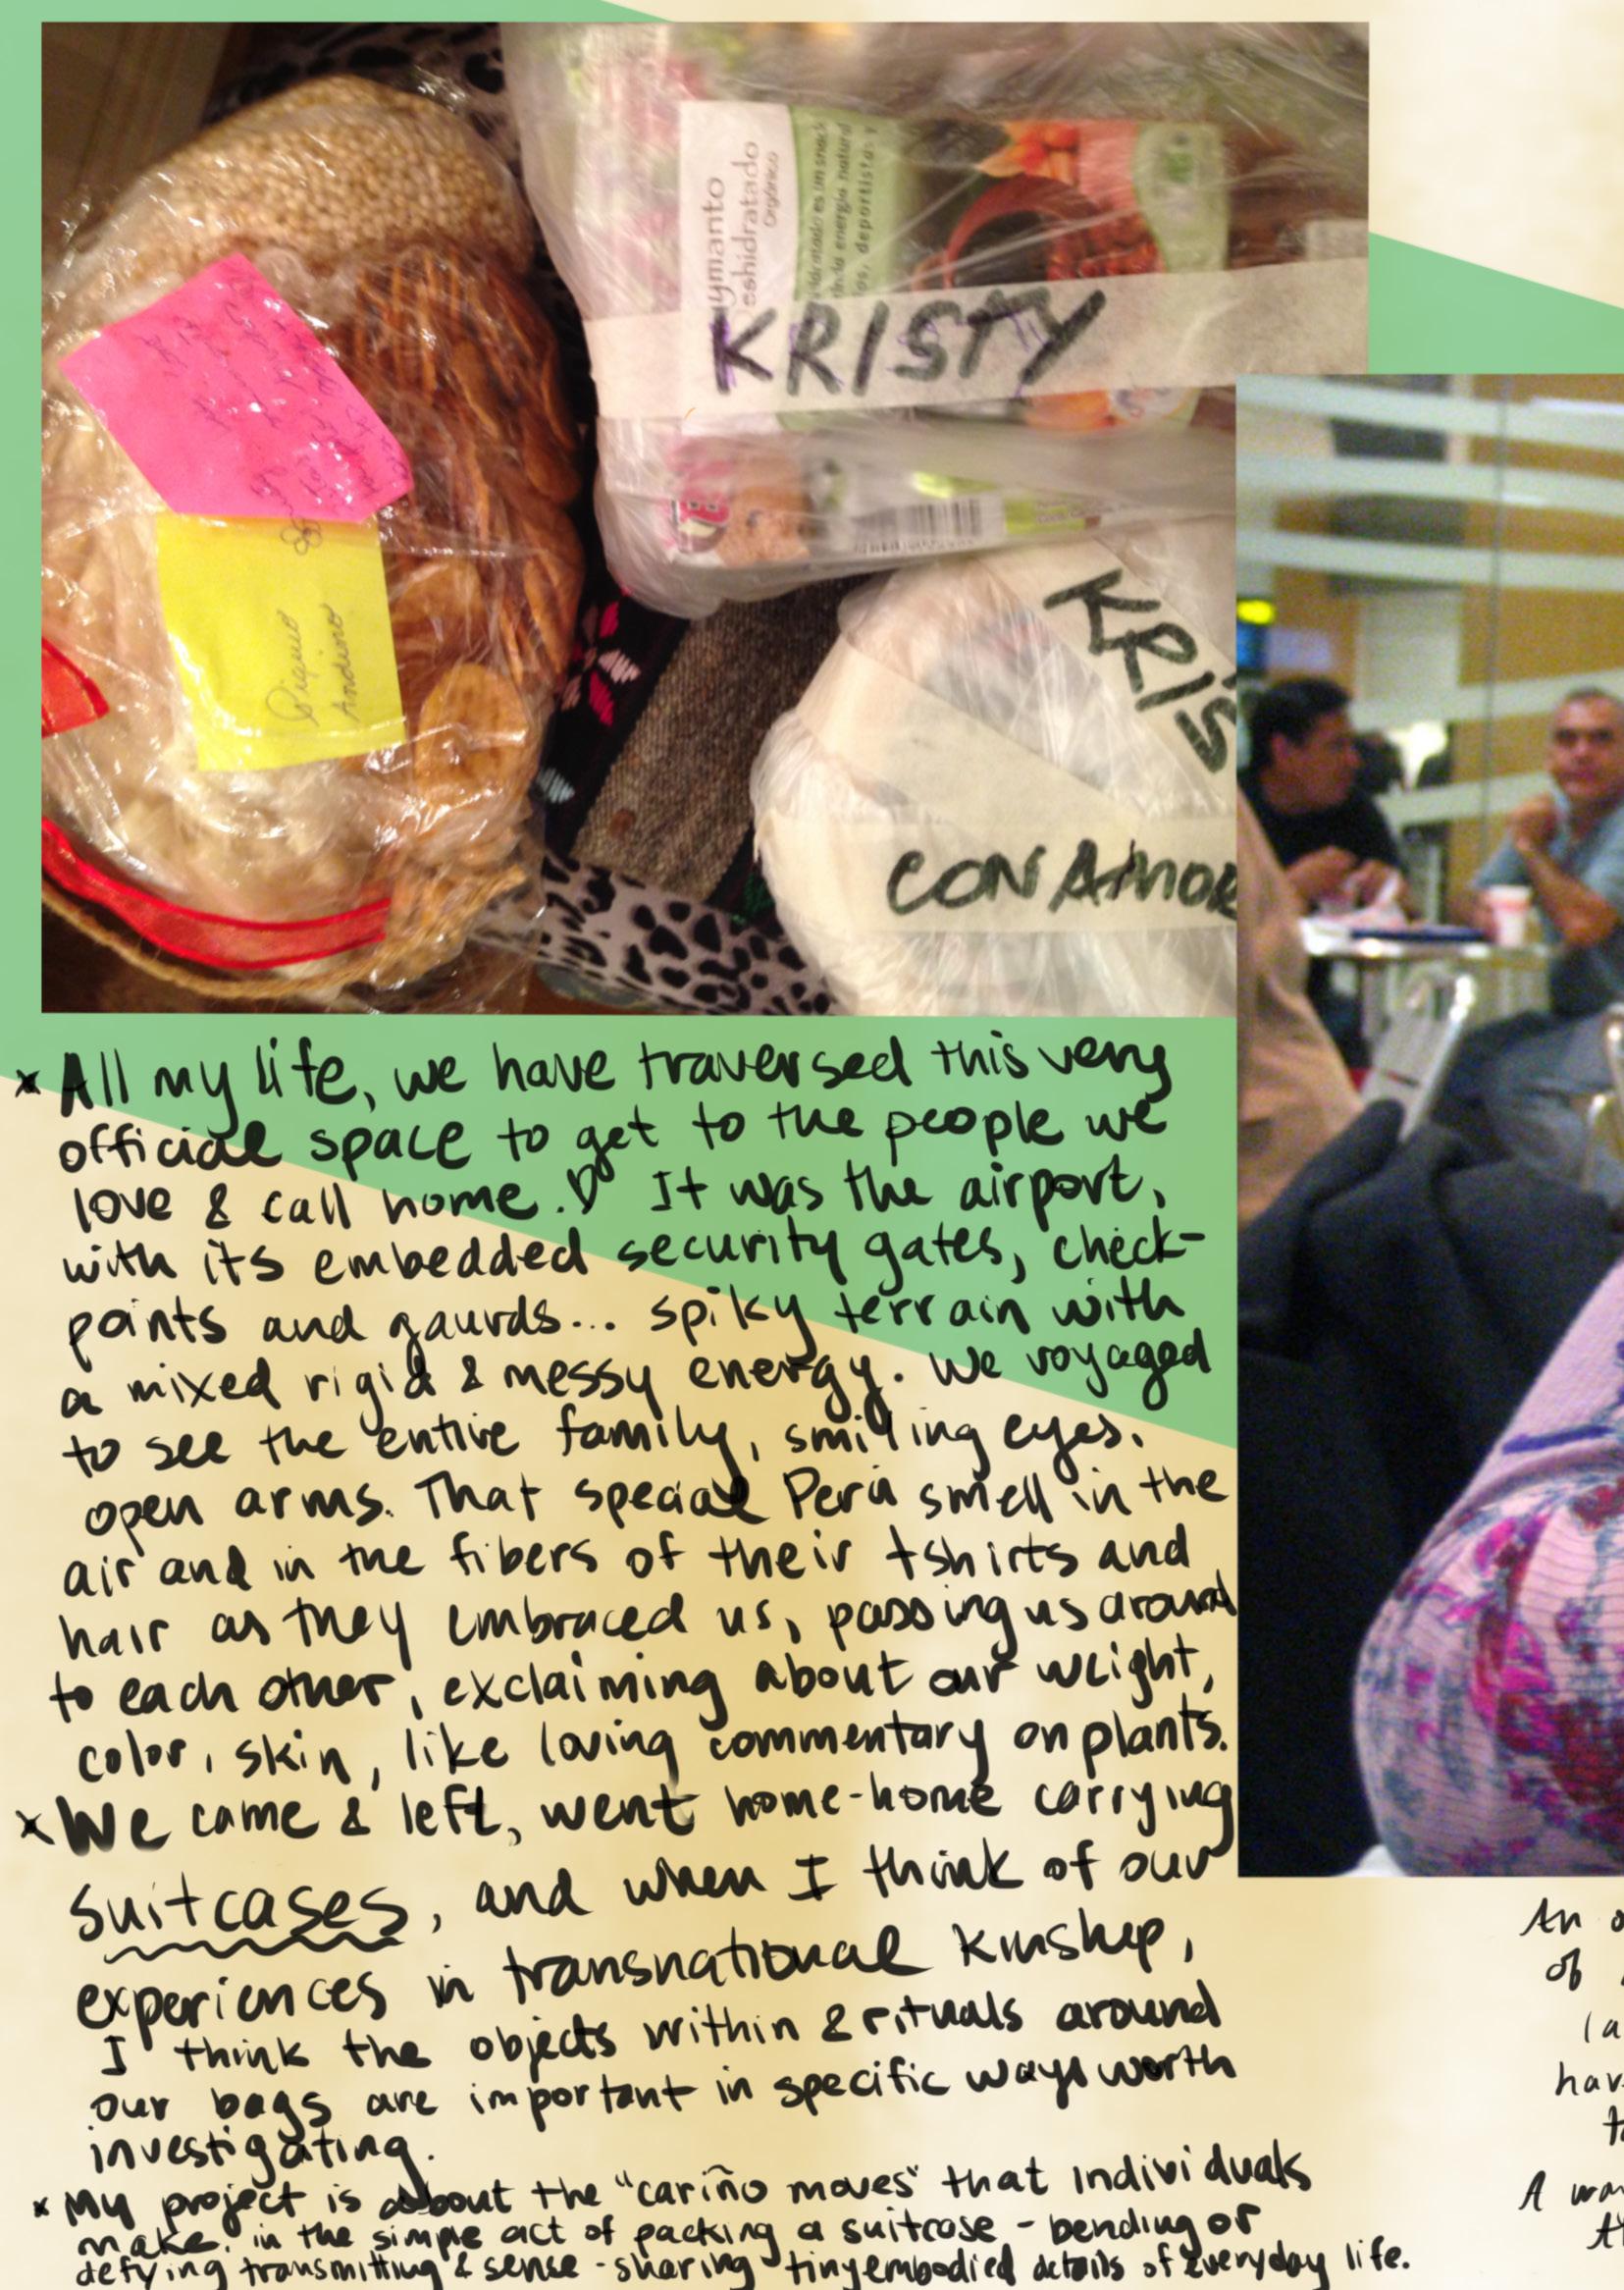 ymanto
eshidratado
Orgánico
KRISTY
KRIS
CON AMOR
Piqueo
Andino
x All my life, we have traversed this very
official space to get to the people we
love & call home.♡ It was the airport,
with its embedded security gates, check-
points and gaurds... spiky terrain with
a mixed rigid & messy energy. We voyaged
to see the entire family, smiling eyes.
open arms. That special Perú smell in the
air and in the fibers of their tshirts and
hair as they embraced us, passing us around
to each other, exclaiming about our weight,
color, skin, like loving commentary on plants.
x We came & left, went home-home carrying
suitcases, and when I think of our
experiences in transnational kinship,
I think the objects within & rituals around
our bags are important in specific ways worth
investigating.
x My project is about the "cariño moves" that individuals
make. in the simple act of packing a suitcase - bending or
defying transmitting & sense-sharing tiny embodied details of everyday life.
An o
of
(a
hav
to
A wa
th